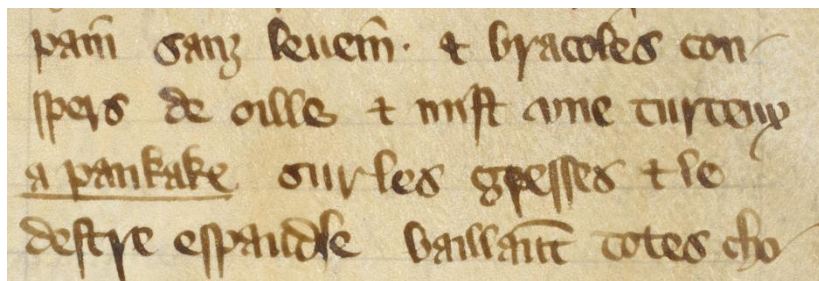 pain̄ sanz leuem̄. & bracoles con-
spers de oille & mist vne turteux
a pankake sur les gresses & le
destre espaudle baillant̄ totes cho-